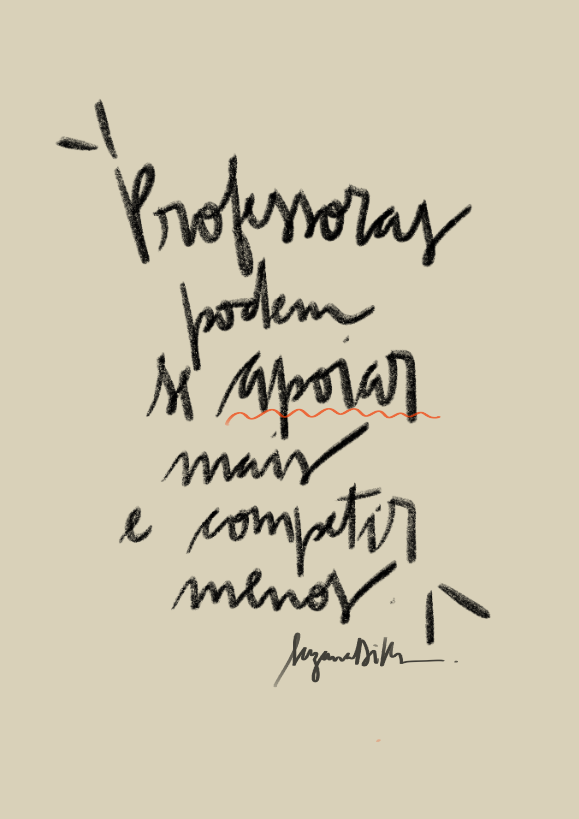 Professoras
podem
se apoiar
mais
e competir
menos